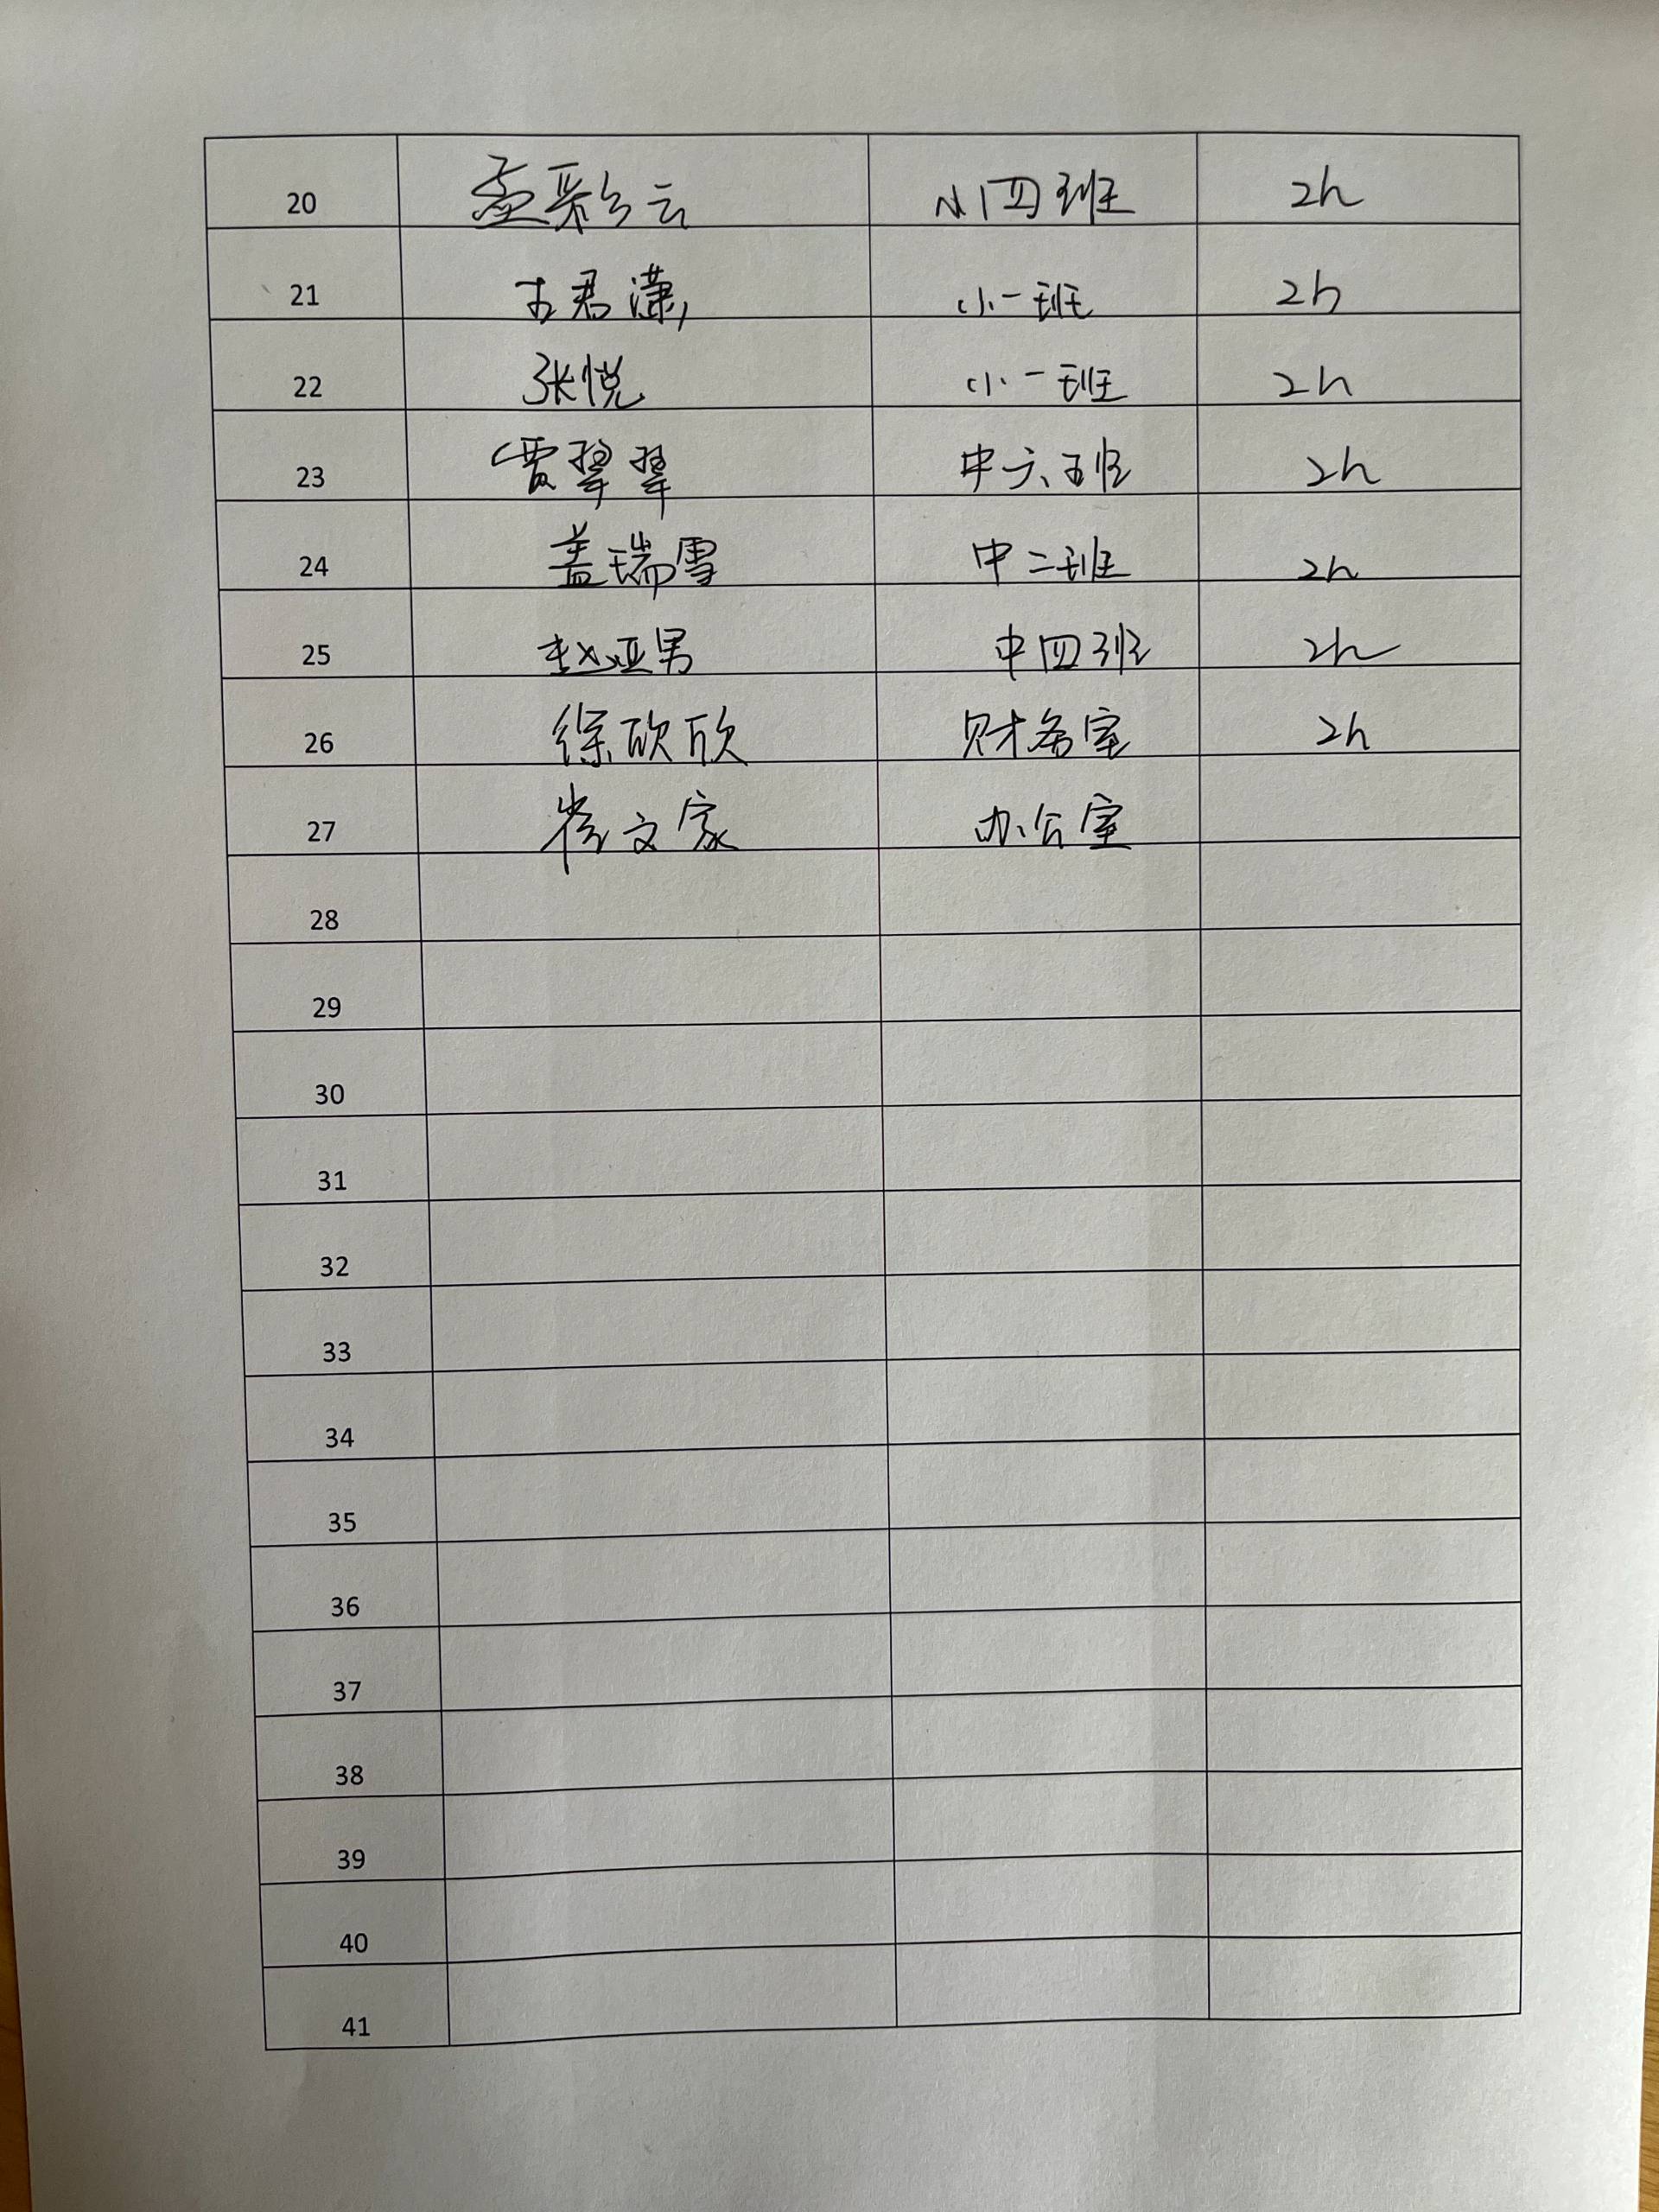 20 孟彩云 小四班 2h
21 王君潇 小一班 2h
22 张悦 小一班 2h
23 贾翠翠 中六班 2h
24 盖瑞雪 中二班 2h
25 赵亚男 中四班 2h
26 徐欣欣 财务室 2h
27 文家 办公室
28
29
30
31
32
33
34
35
36
37
38
39
40
41